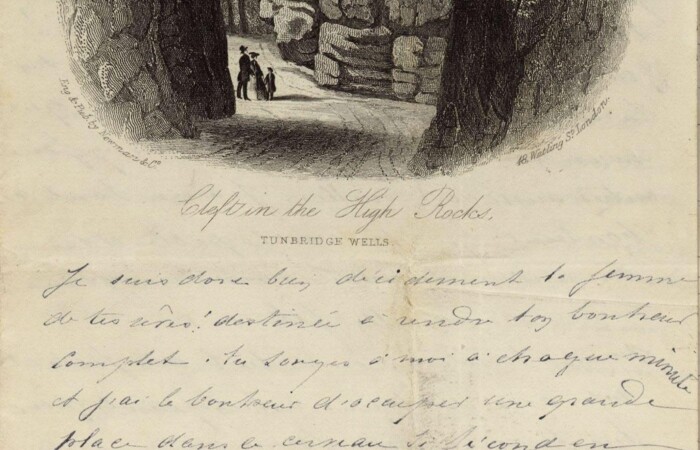 Eng. & Pub. by Newman & Co.
48, Watling St. London.
Cleft in the High Rocks,
TUNBRIDGE WELLS.
Je suis donc bien décidement la femme
de tes rêves! destinée à rendre ton bonheur
complet. tu songes à moi à chaque minute
et j'ai le bonheur d'occuper une grande
place dans ce cerveau si fécond en